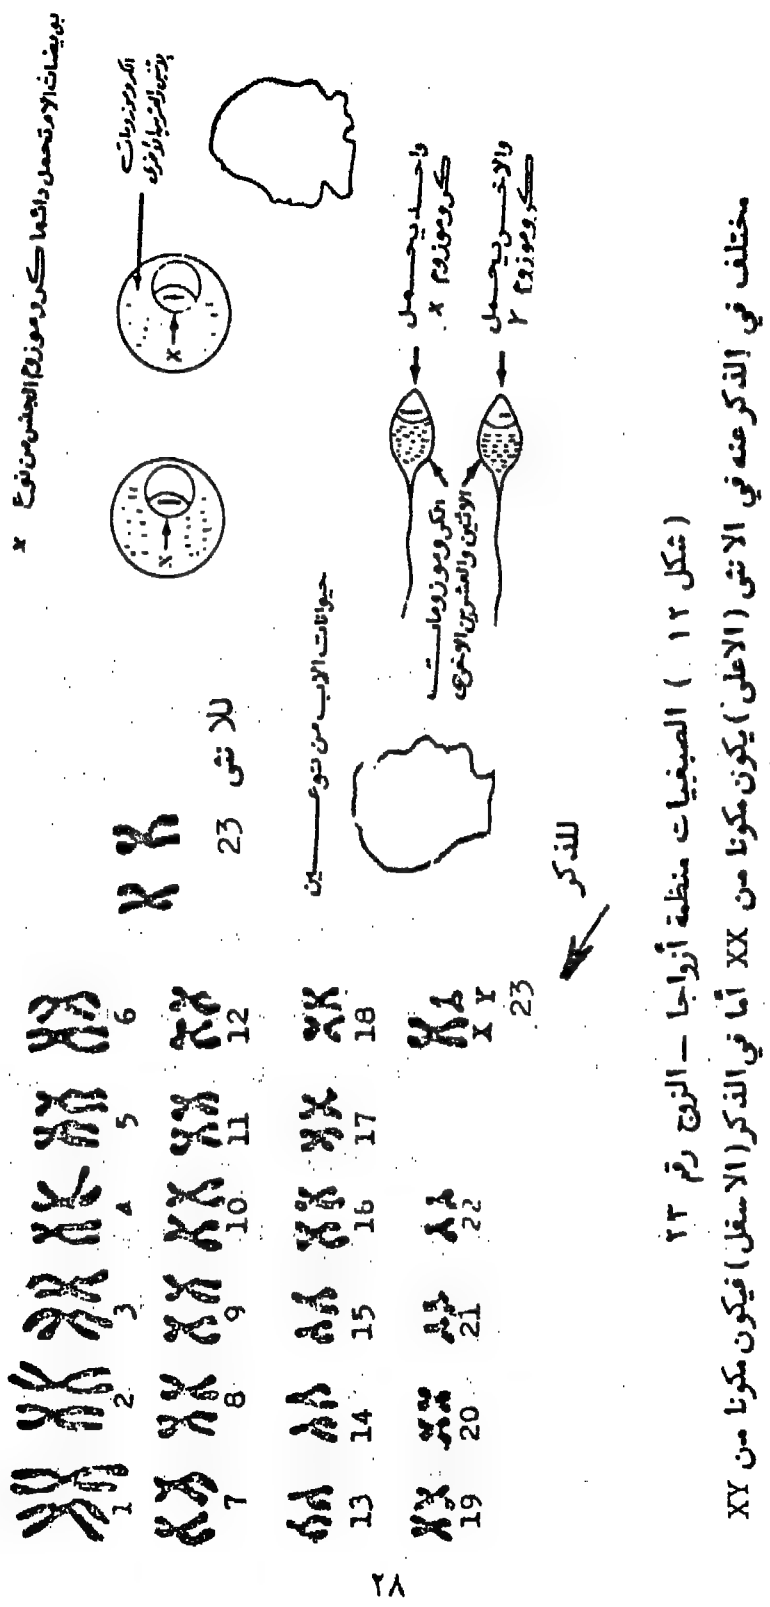 بويضات الام تحمل دائما كروموزوم الجنس من نوع x
الكروموزومات
x
x
واحد يحمل
كروموزوم x
والاخر يحمل
كروموزوم Y
الكروموزومات
الاثنين والعشرين الاخرى
حيوانات الاب من نوعين
23 للانثى
للذكر
1 2 3 4 5 6
7 8 9 10 11 12
13 14 15 16 17 18
X Y
19 20 21 22 23
(شكل ١٢ ) الصبغيات منظمة أزواجا – الزوج رقم ٢٣
مختلف في الذكر عنه في الانثى (الاعلى) يكون مكونا من XX أما في الذكر (الاسفل) فيكون مكونا من XY
٢٨